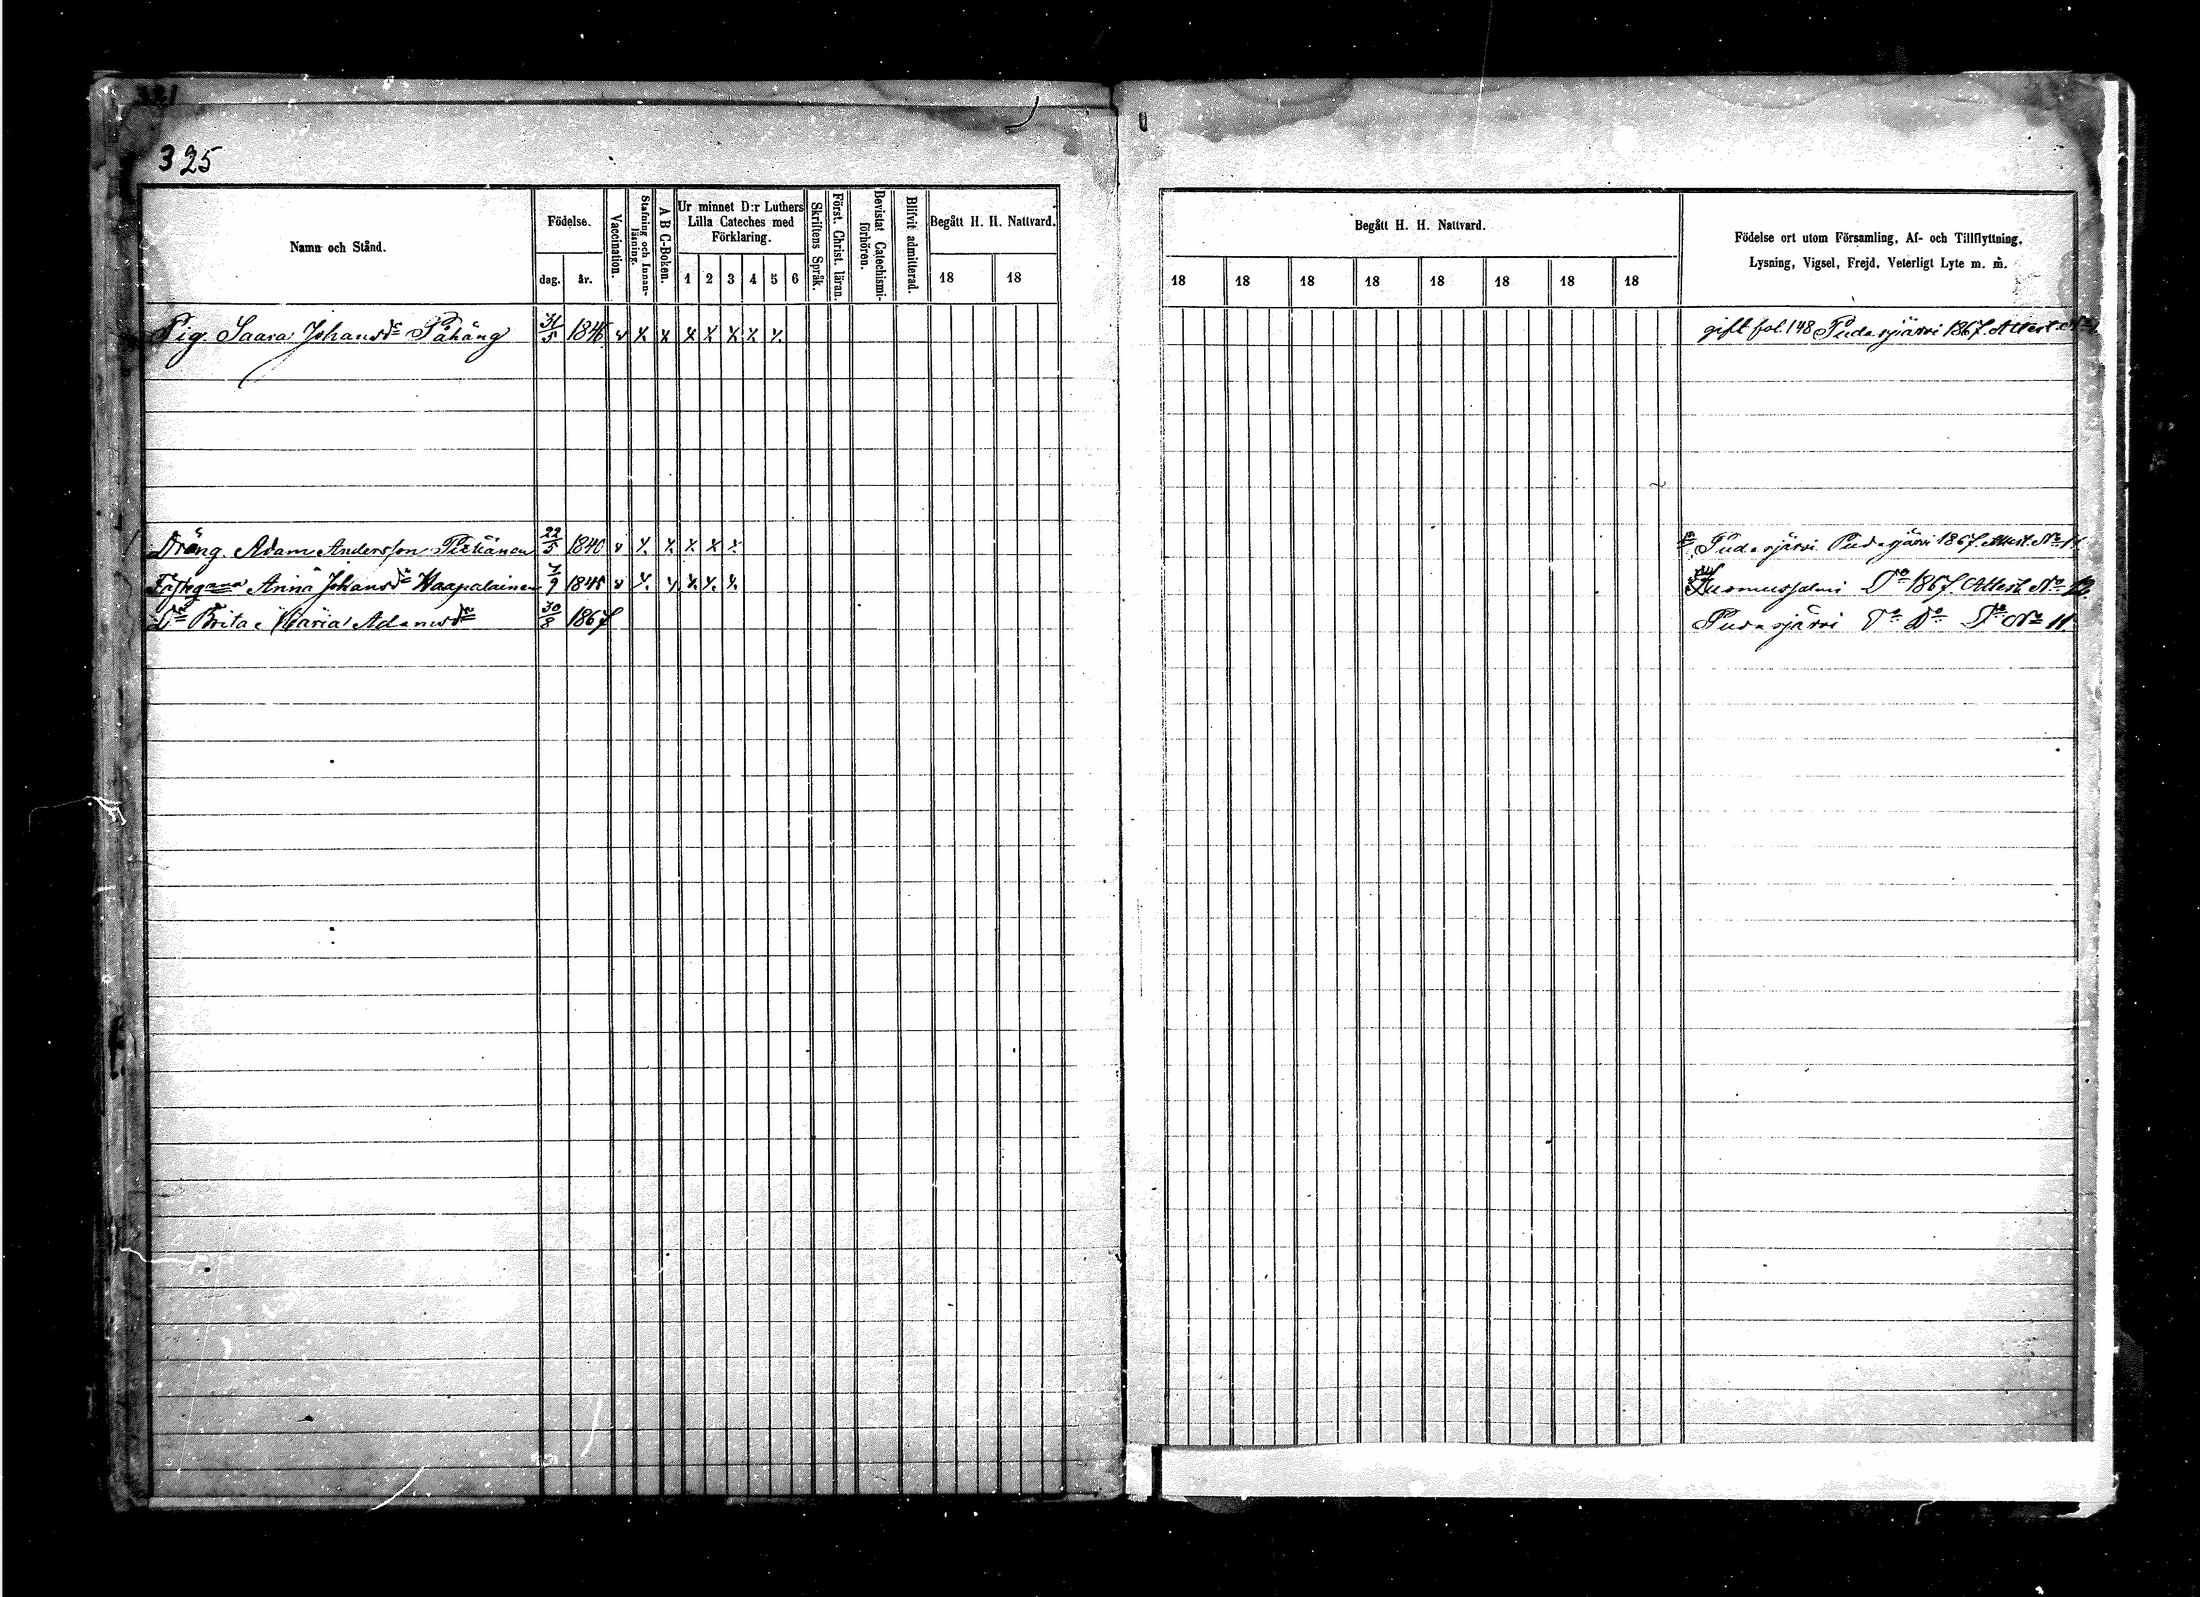 325
Namn och Stånd.
Födelse.
dag.
år.
Vaccination.
Stafning och Innanläsning.
A B C-Boken.
Ur minnet D:r Luthers
Lilla Cateches med
Förklaring.
1 2 3 4 5 6
Skriftens Språk.
Först. Christ. läran.
Bevistat Catechismiförhören.
Blifvit admitterad.
Begått H. H. Nattvard.
18 18
Begått H. H. Nattvard.
18 18 18 18 18 18 18 18
Födelse ort utom Församling, Af- och Tillflyttning,
Lysning, Vigsel, Frejd, Veterligt Lyte m. m.
Pig. Saara Johansdr Påhäng 31/5 1846 v x x x x x x x gift fol. 148 Pudasjärvi 1867. Attest
Dräng. Adam Andersson 22/5 1840 v x x x x x Pudasjärvi Pudasjärvi 1867. Attest. No 11.
Anna Johansdr Haapalainen 7/9 1845 v x x x x x Kuomusjalmi Do 1867. Attest. No 12.
Dr Brita Maria Adamsdr 30/8 1867 Pudasjärvi Do Do Do No 11.